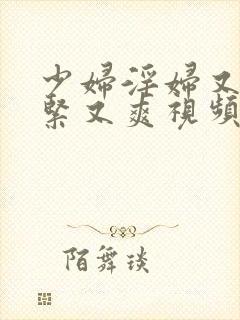 少婦淫婦又
緊又爽視頻
陌舞琰